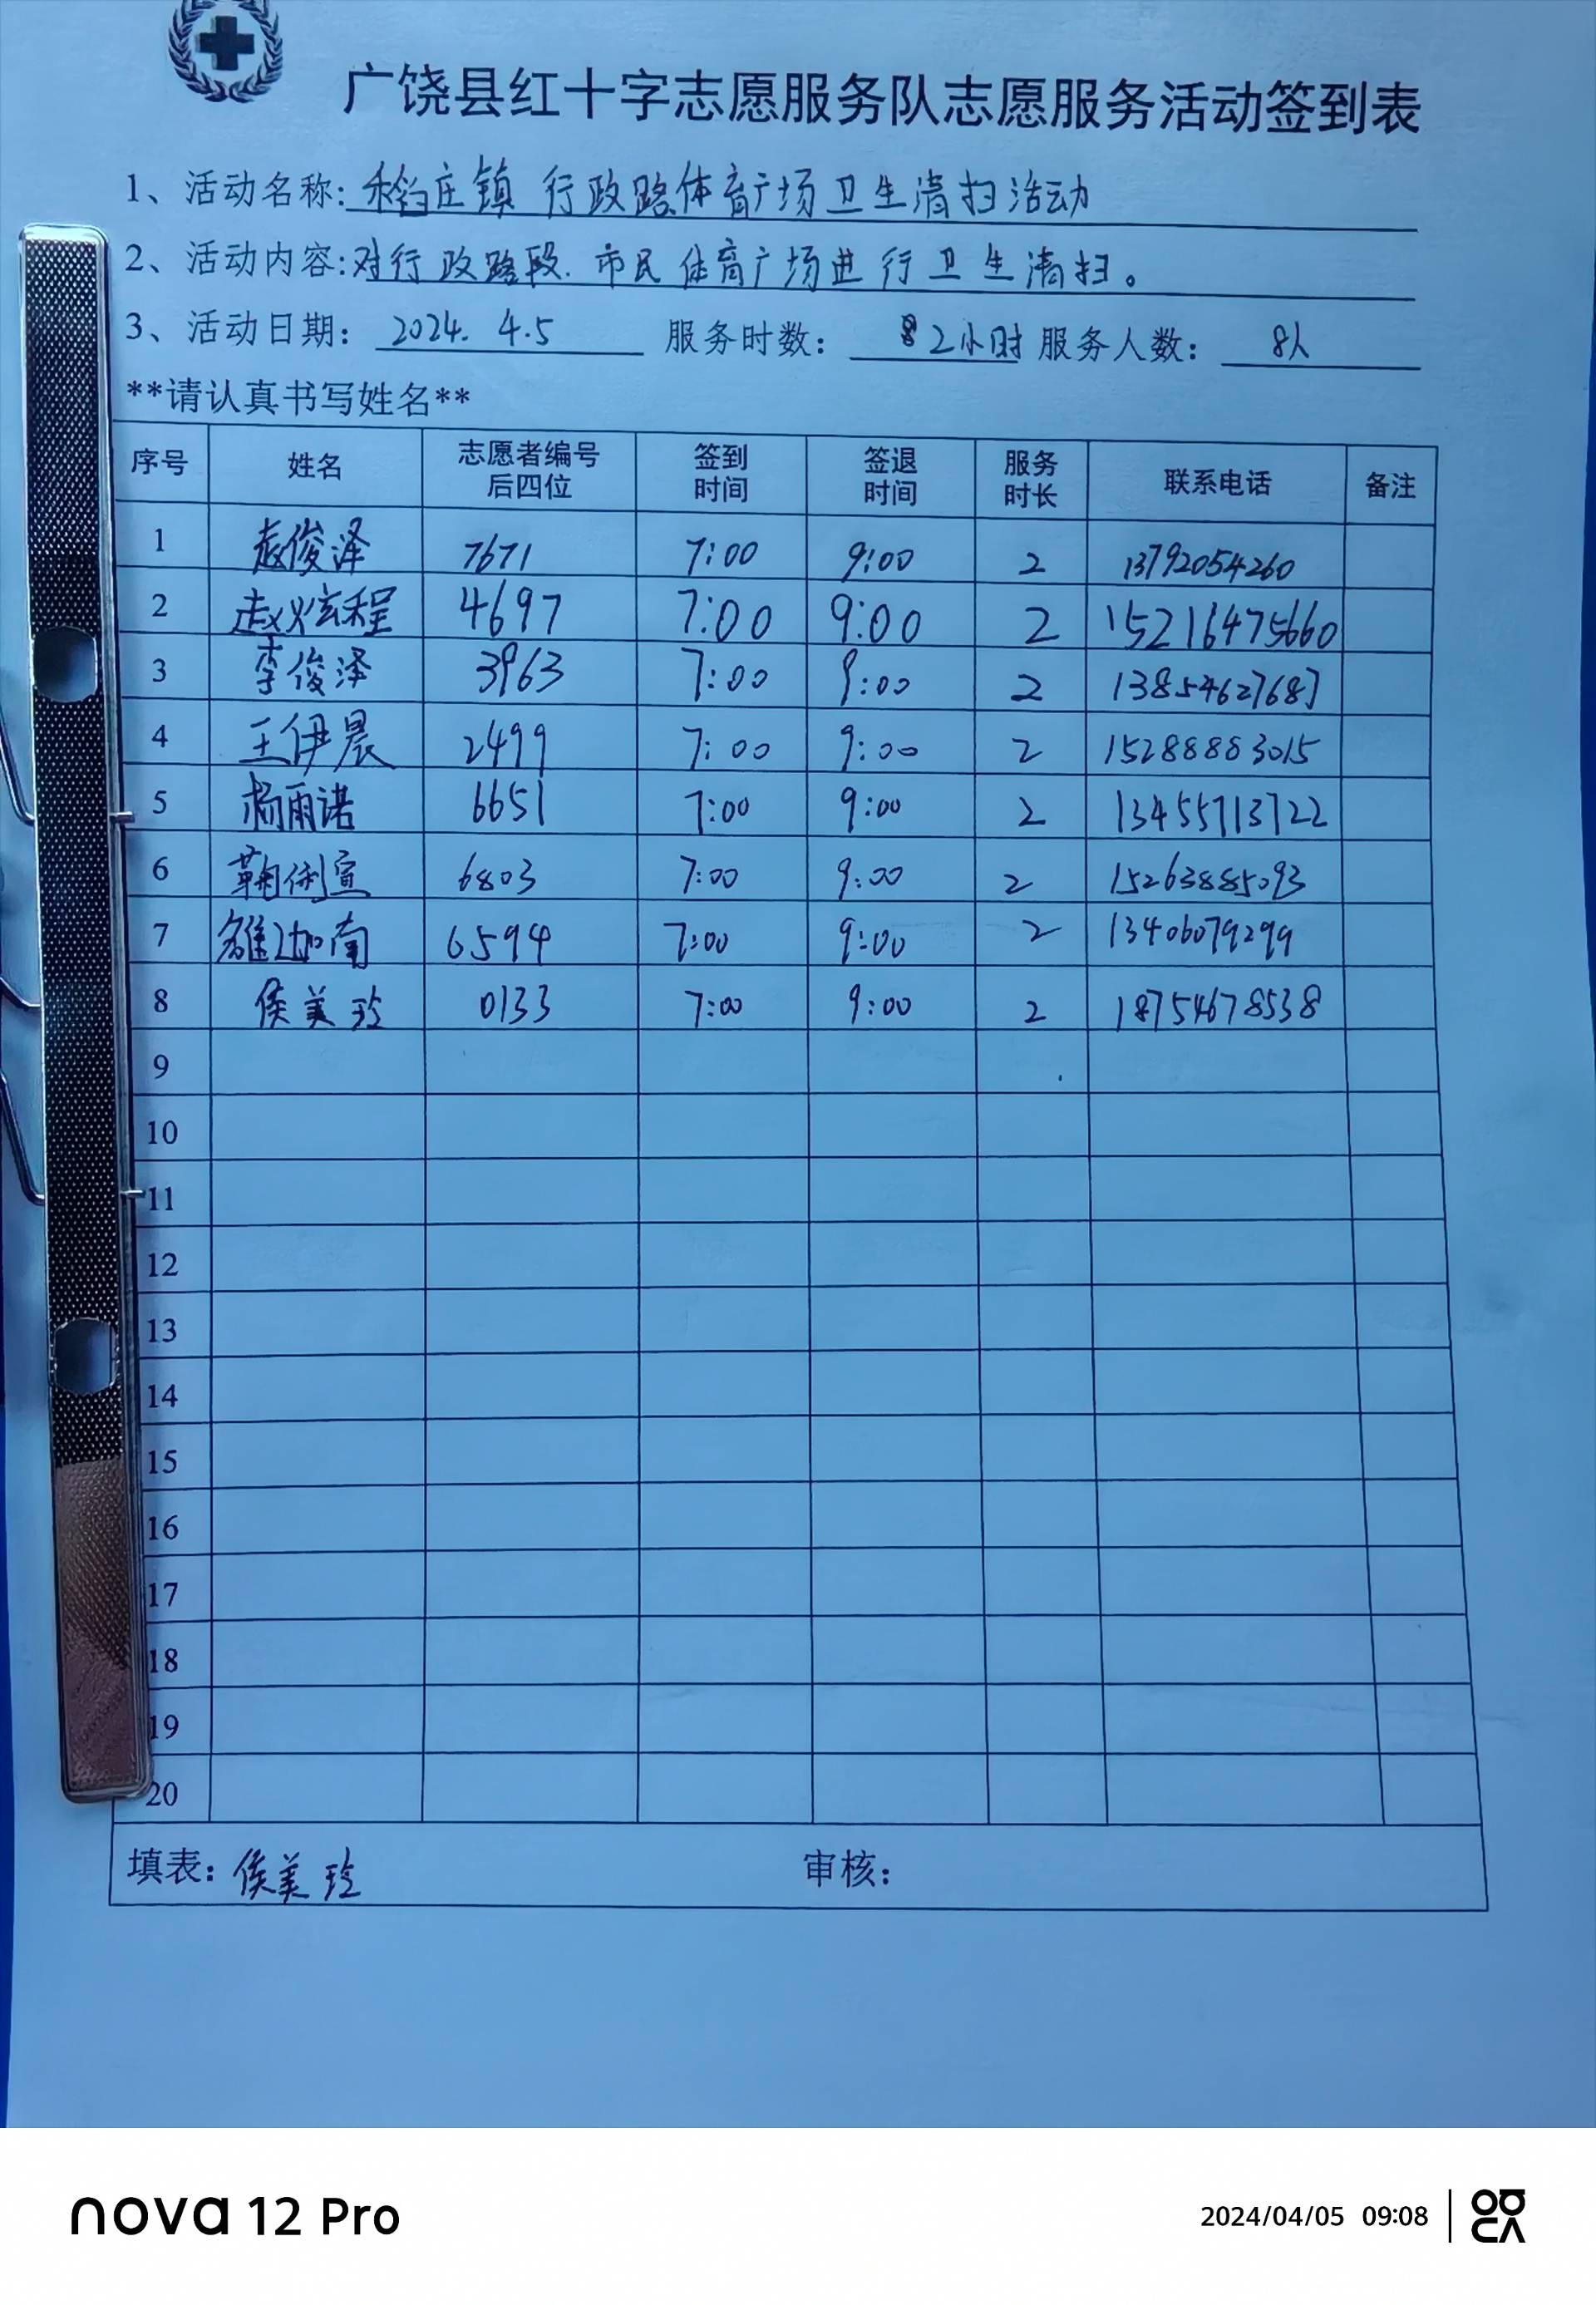 广饶县红十字志愿服务队志愿服务活动签到表
1、活动名称: 稻庄镇 行政路体育广场卫生清扫活动
2、活动内容: 对行政路段. 市民体育广场进行卫生清扫。
3、活动日期: 2024. 4.5 服务时数: 2小时 服务人数: 8人
**请认真书写姓名**
序号 姓名 志愿者编号后四位 签到时间 签退时间 服务时长 联系电话 备注
1 赵俊泽 7671 7:00 9:00 2 13792054260
2 赵炫程 4697 7:00 9:00 2 15216475660
3 李俊泽 3963 7:00 9:00 2 13854627687
4 王伊晨 2499 7:00 9:00 2 15288883015
5 杨雨诺 6651 7:00 9:00 2 13455713722
6 鞠俐宣 6803 7:00 9:00 2 15263885093
7 雒迦南 6594 7:00 9:00 2 13406079299
8 侯美玲 0133 7:00 9:00 2 18754678538
9
10
11
12
13
14
15
16
17
18
19
20
填表: 侯美玲 审核:
nova 12 Pro 2024/04/05 09:08